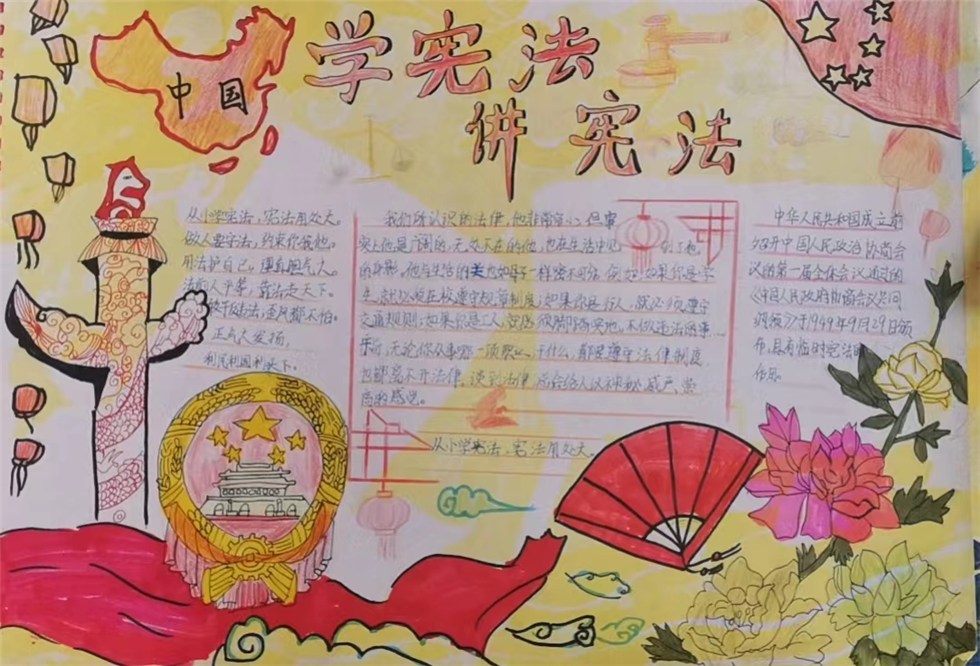 学宪法
讲宪法
中国
从小学宪法，宪法用处大。
做人要守法，约束你我他。
用法护自己，
法的人平等，靠法走天下。
歪风都不怕。
正气大发扬，
利民利国利天下。
我们所认识的法律，他非常 但事
实上他是广阔的，无处不在的他，也在生活中见 到了他
的身影。他与生活的 密不可分。例如：如果你是学
生，就必须在校遵守规章制度；如果你是行人，就必须遵守
交通规则；如果你是工人， 脚踏实地，不做违法的事…
无论你从事哪一项职业，干什么，都要遵守法律制度，
也都离不开法律。谈到法律，总会给人以神秘、威严、崇
高的感觉。
从小学宪法，宪法用处大。
中华人民共和国成立前
夕召开中国人民政治协商会
议的第一届全体会议通过的
《中国人民政府协商会议共同
纲领》于1949年9月29日颁
布，具有临时宪法的
作用。